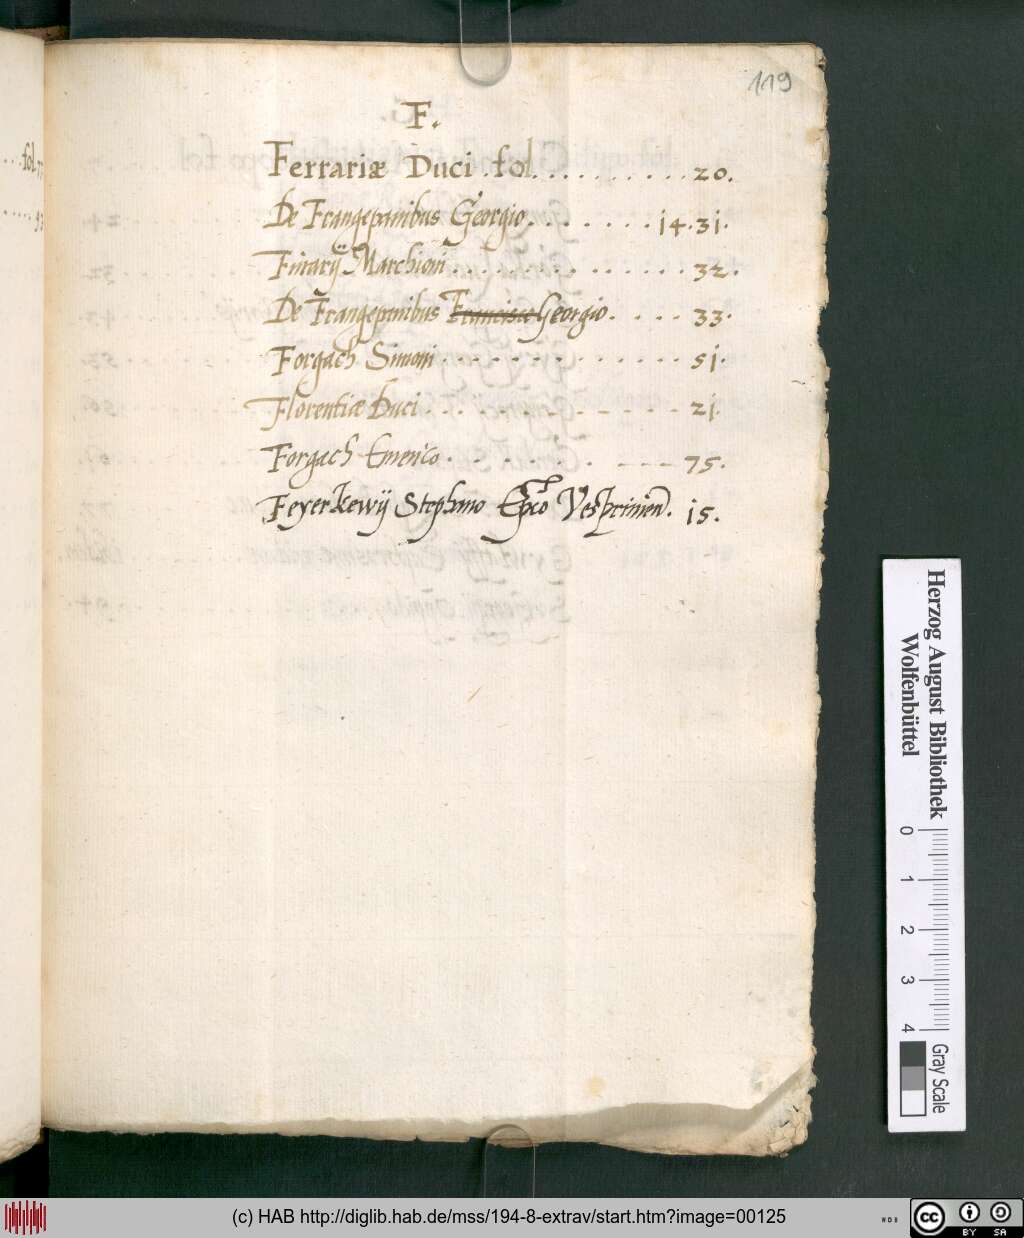 119
F.
Ferrariæ Duci . fol. . . . . . . . . . . 20.
De Frangepanibus Georgio . . . . . . . . 14. 31.
Marchioni . . . . . . . . . . . . . . 32.
De Frangepanibus Francisco Georgio . . . . 33.
Forgach Simoni . . . . . . . . . . . . . 51.
Florentiæ Duci . . . . - - - - - - - 21.
Forgach Emerico . . . . . . . - - - - 75.
Feyerkewÿ Stephano Epco Vesprimien. 15.
fol.
Herzog August Bibliothek
Wolfenbüttel
0 1 2 3 4
Gray Scale
(c) HAB http://diglib.hab.de/mss/194-8-extrav/start.htm?image=00125
WDB
cc
BY SA